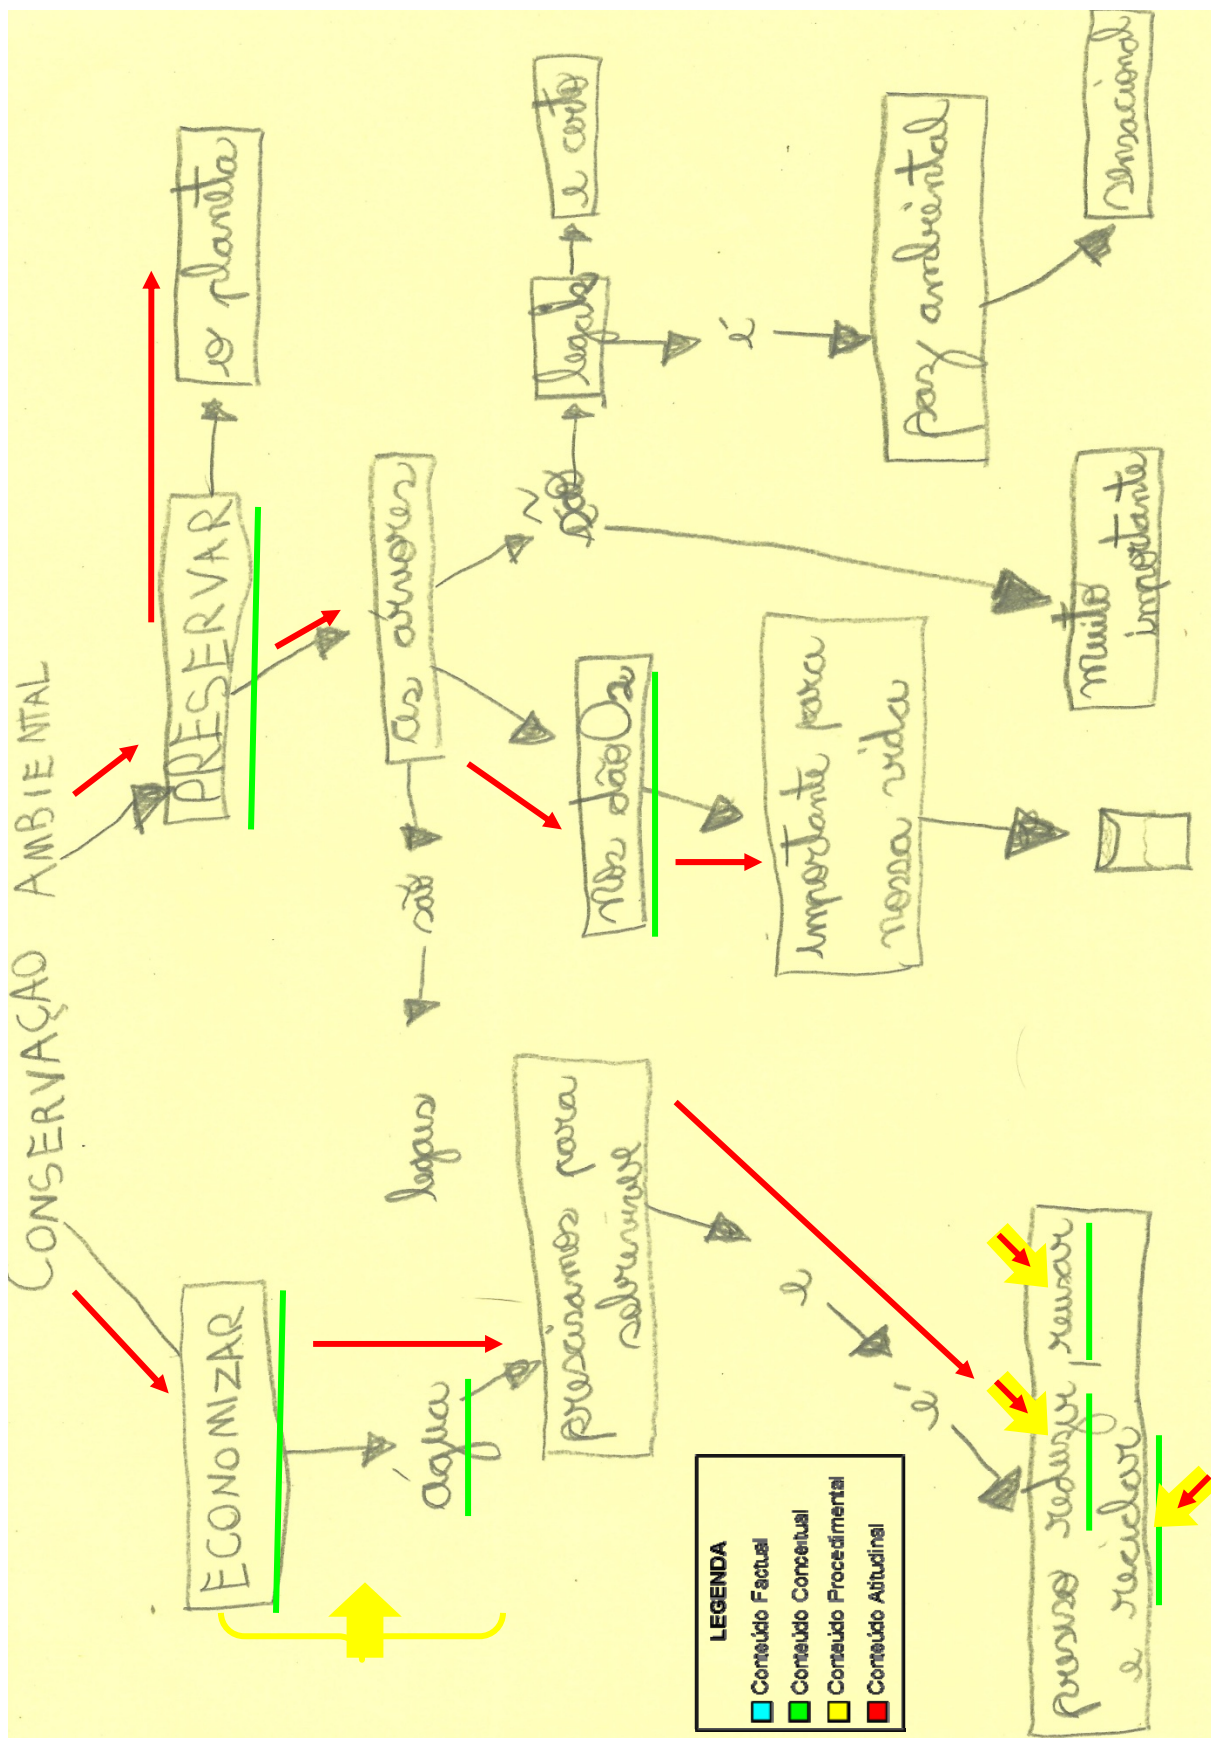 CONSERVAÇÃO AMBIENTAL
ECONOMIZAR
PRESERVAR
o planeta
água
as árvores
são
legais
presisamos para
sobreviver
nos dão O2
são
legais
e certo
e
é
importante para
nossa vida
é
paz ambiental
sensacional
muito
importante
preciso reduzir, reusar
e reciclar
LEGENDA
Conteúdo Factual
Conteúdo Conceitual
Conteúdo Procedimental
Conteúdo Atitudinal